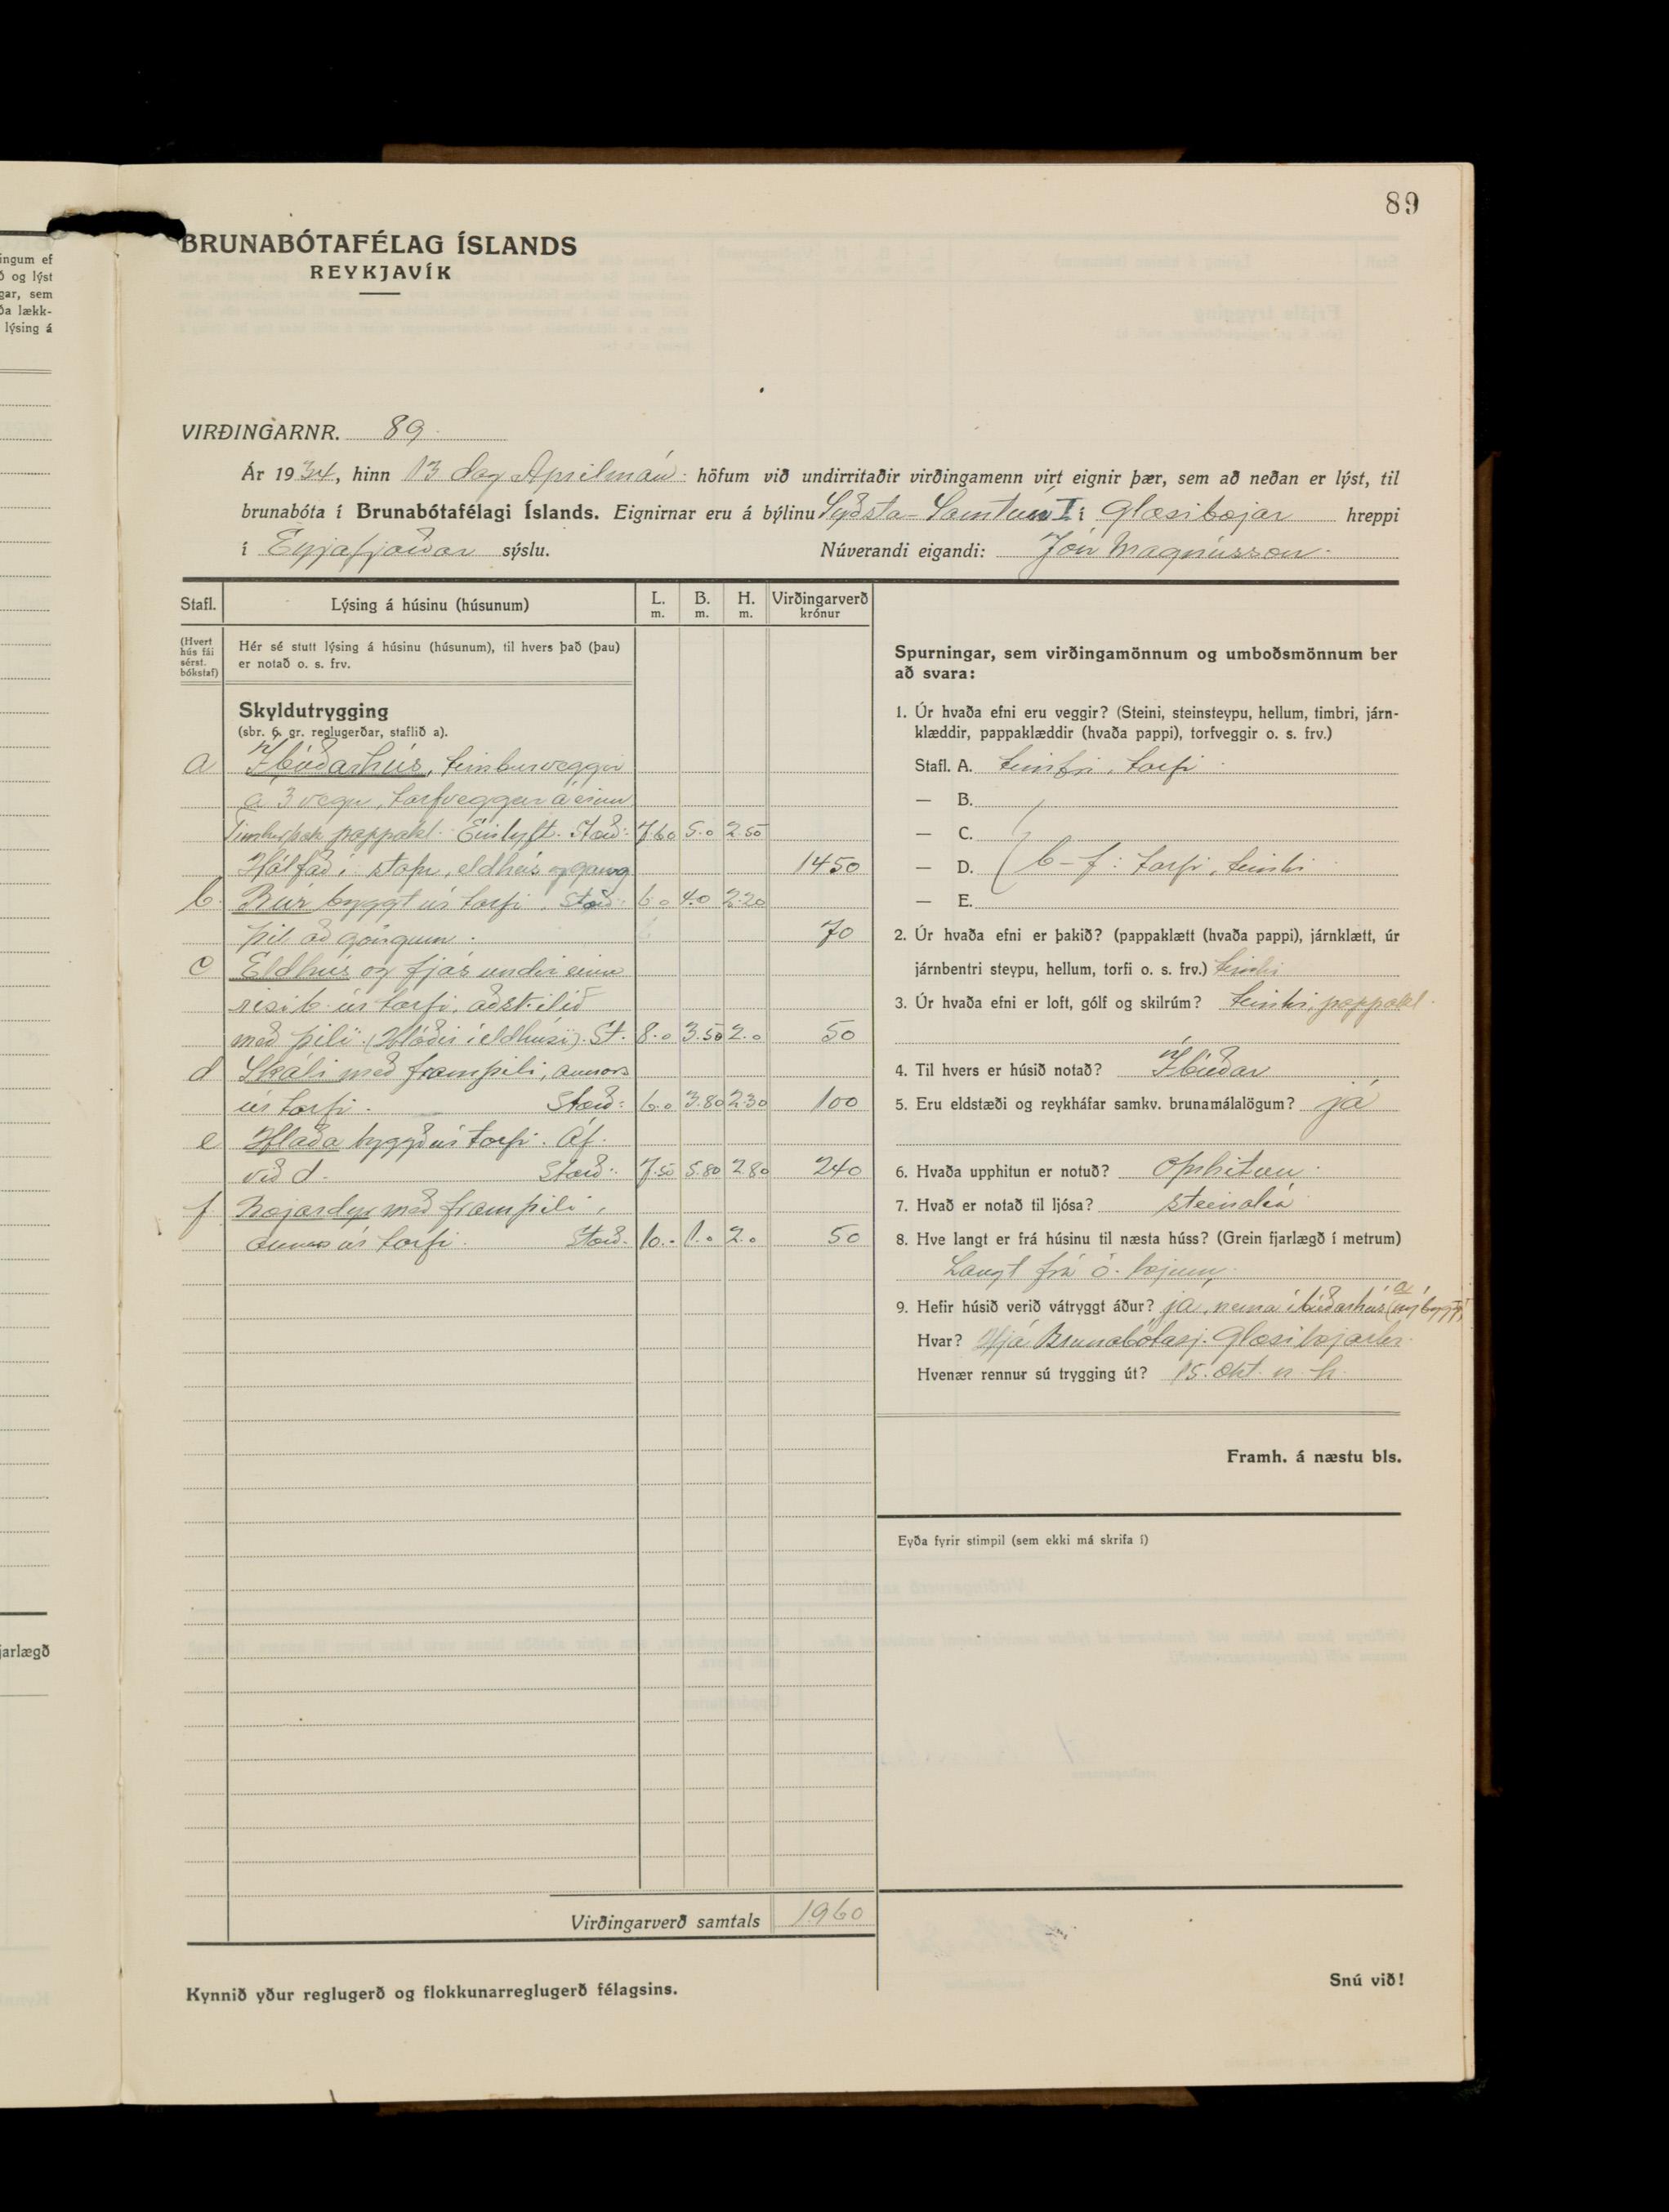 89
BRUNABÓTAFÉLAG ÍSLANDS
REYKJAVÍK
VIRÐINGARNR. 89.
Ár 1934, hinn 13 dag Aprilmán. höfum við undirritaðir virðingamenn virt eignir þær, sem að neðan er lýst, til
brunabóta í Brunabótafélagi Íslands. Eignirnar eru á býlinu Syðsta-Samtúni I í Glæsibæjar hreppi
í Eyjafjarðar sýslu. Núverandi eigandi: Jón Magnússon.
Stafl. Lýsing á húsinu (húsunum) L. m. B. m. H. m. Virðingarverð krónur
(Hvert hús fái sérst. bókstaf) Hér sé stutt lýsing á húsinu (húsunum), til hvers það (þau)
er notað o. s. frv.
Skyldutrygging
(sbr. 6. gr. reglugerðar, staflið a).
a Íbúðarhús, timburveggir
á 3 vegu, torfveggur á einn
Timburþak pappakl. Einlyft. Stærð: 7.60 5.0 2.50
Hálfað í stofu, eldhús og gang 1450
b. Búr byggt úr torfi. Stærð: 6.0 4.0 2.20
þil að göngum. 70
c Eldhús og fjós undir einu
risi b. úr torfi, aðskilið
með þili. (Hlóðir í eldhúsi). St. 8.0 3.50 2.0 50
d Skáli með framþili, annars
úr torfi. Stærð: 6.0 3.80 2.30 100
e Hlaða byggð úr torfi. Áf.
við d. Stærð: 7.50 5.80 2.80 240
f Bæjardyr með framþili,
annars úr torfi. Stærð. 10.- 1.0 2.0 50
Virðingarverð samtals 1960
Kynnið yður reglugerð og flokkunarreglugerð félagsins.
Spurningar, sem virðingamönnum og umboðsmönnum ber
að svara:
1. Úr hvaða efni eru veggir? (Steini, steinsteypu, hellum, timbri, járn-
klæddir, pappaklæddir (hvaða pappi), torfveggir o. s. frv.)
Stafl. A. timbri, torfi
— B.
— C.
— D. b-f: torfi, timbri
— E.
2. Úr hvaða efni er þakið? (pappaklætt (hvaða pappi), járnklætt, úr
járnbentri steypu, hellum, torfi o. s. frv.) timbri
3. Úr hvaða efni er loft, gólf og skilrúm? timbri, pappakl.
4. Til hvers er húsið notað? Íbúðar
5. Eru eldstæði og reykháfar samkv. brunamálalögum? já
6. Hvaða upphitun er notuð? Ofnhitun.
7. Hvað er notað til ljósa? steinolía
8. Hve langt er frá húsinu til næsta húss? (Grein fjarlægð í metrum)
Langt frá ö. bæjum.
9. Hefir húsið verið vátryggt áður? já, nema íbúðarhús a (nýbyggt)
Hvar? Hjá Brunabótasj. Glæsibæjarhr.
Hvenær rennur sú trygging út? 15. okt. n. k.
Framh. á næstu bls.
Eyða fyrir stimpil (sem ekki má skrifa í)
Snú við!
ingum ef
ð og lýst
gar, sem
ða lækk-
lýsing á
jarlægð